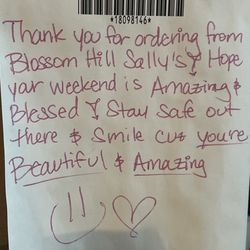 *18098146*
Thank you for ordering from
Blossom Hill Sally's! Hope
your weekend is Amazing &
Blessed! Stay Safe out
there & Smile cuz you're
Beautiful & Amazing